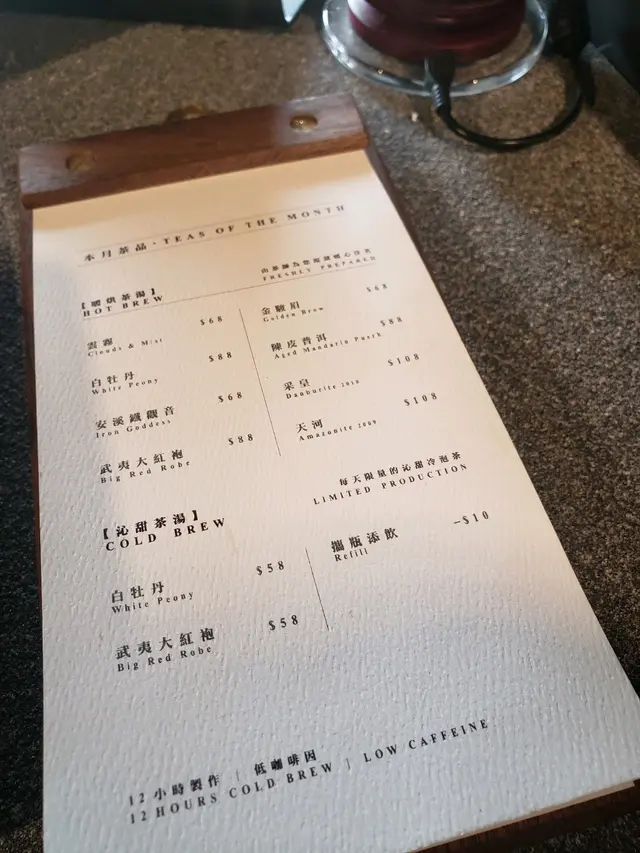 本月茶品·TEAS OF THE MONTH
【暖烘茶湯】
HOT BREW
FRESHLY PREPARED
雲霧 $68
Clouds & Mist
白牡丹 $88
White Peony
安溪鐵觀音 $68
Iron Goddess
武夷大紅袍 $88
Big Red Robe
金駿眉 $68
Golden Brow
陳皮普洱 $88
Aged Mandarin Puerh
采皇 $108
Danburite 2010
天河 $108
Amazonite 2009
【沁甜茶湯】
COLD BREW
每天限量的沁甜冷泡茶
LIMITED PRODUCTION
白牡丹 $58
White Peony
武夷大紅袍 $58
Big Red Robe
攜瓶添飲 -$10
Refill
12小時製作 | 低咖啡因
12 HOURS COLD BREW | LOW CAFFEINE